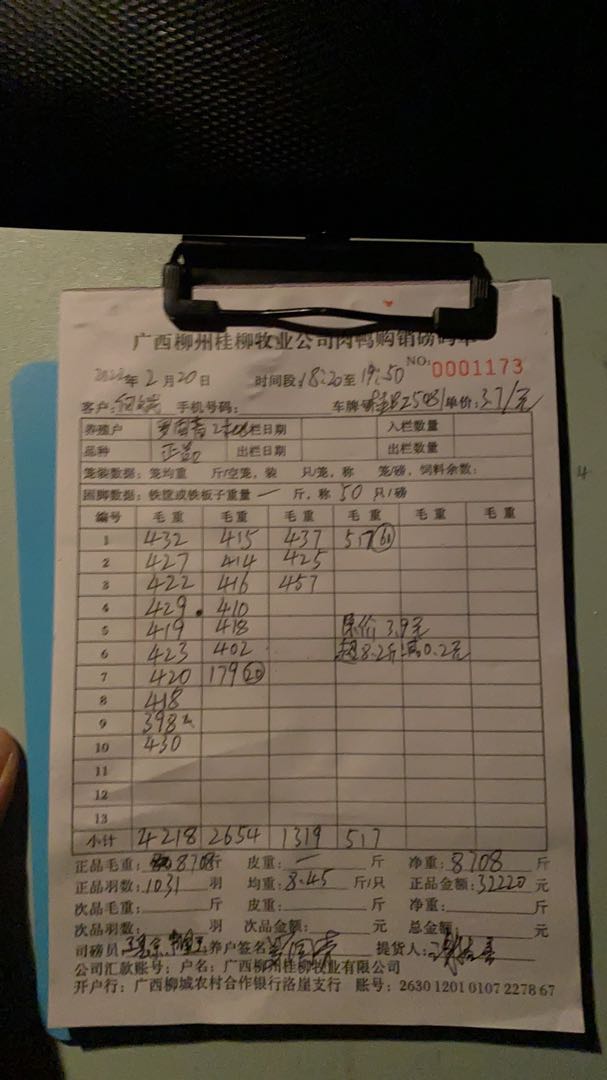 广西柳州桂柳牧业公司肉鸭购销磅码单
NO: 0001173
年 2 月 20 日 时间段 18:20 至 19:50
客户: 手机号码: 车牌号 单价: 3.7/元
养殖户 出栏日期 入栏数量
品种 正品 出栏日期 出栏数量
笼装数据: 笼均重 斤/空笼, 装 只/笼, 称 笼/磅, 饲料余数:
捆脚数据: 铁筐或铁板子重量 一 斤, 称 50 只/磅
编号 毛重 毛重 毛重 毛重 毛重 毛重
1 432 415 437 517 (61)
2 427 414 425
3 422 416 457
4 429 410
5 419 418 原价 3.9元
6 423 402 超8.2斤减0.2元
7 420 179 (20)
8 418
9 398
10 430
11
12
13
小计 4218 2654 1319 517
正品毛重: 8708 斤 皮重: 一 斤 净重: 8708 斤
正品羽数: 1031 羽 均重: 8.45 斤/只 正品金额: 32220 元
次品毛重: 斤 皮重: 斤 净重: 斤
次品羽数: 羽 次品金额: 元 总金额: 元
司磅员 养户签名: 提货人:
公司汇款账号: 户名: 广西柳州桂柳牧业有限公司
开户行: 广西柳城农村合作银行洛崖支行 账号: 2630 1201 0107 2278 67